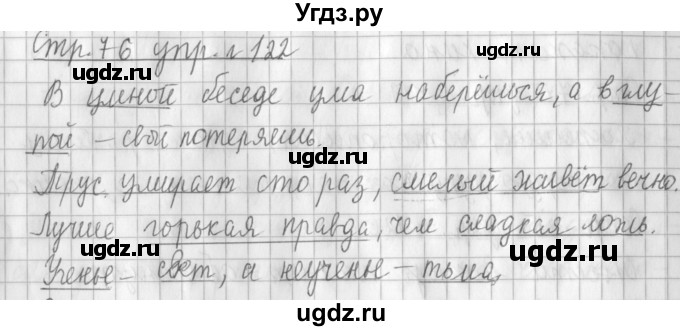 Угдз.ру
Стр. 76 упр. № 122
В умной беседе ума наберёшься, а в глу-
пой – свой потеряешь.
Трус умирает сто раз, смелый живёт вечно.
Лучше горькая правда, чем сладкая ложь.
Ученье – свет, а неученье – тьма.
ugdz.ru
ugdz.ru
ugdz.ru
ugdz.ru
ugdz.ru
ugdz.ru
ugdz.ru
ugdz.ru
ugdz.ru